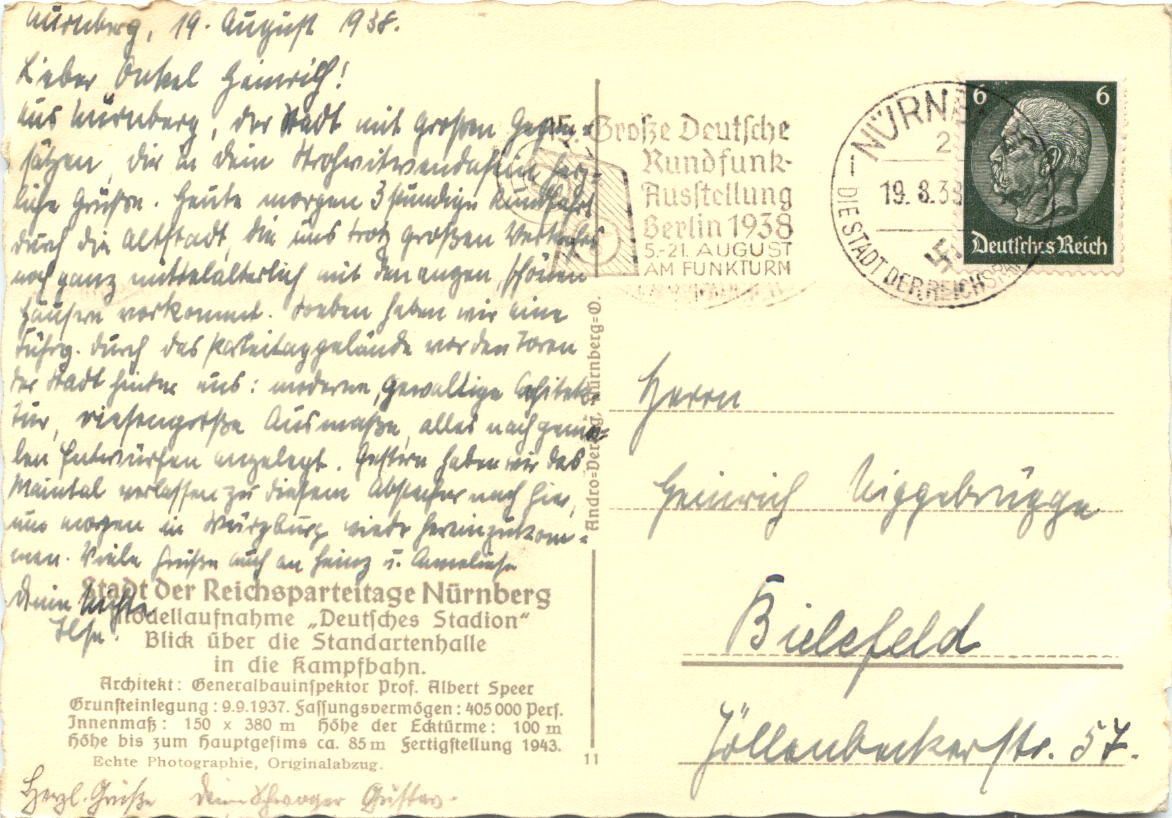 Nürnberg, 19. August 1938.
Lieber Onkel Heinrich!
Aus Nürnberg, der Stadt mit großen Gegen-
sätzen, Dir in Dein Strohwitwendasein herz-
liche Grüße. Heute morgen 3 stündige Rundfahrt
durch die Altstadt, die uns trotz großen Verkehrs
noch ganz mittelalterlich mit den engen, schönen
Häusern vorkommt. Soeben haben wir eine
Führg. durch das Parteitaggelände vor den Toren
der Stadt hinter uns: moderne, gewaltige Achitek-
tur, riesengroße Ausmaße, alles nach genia-
len Entwürfen angelegt. Gestern haben wir das
Maintal verlassen zu diesem Abstecher nach hier,
um morgen in Würzburg wieder hereinzukom-
men. Viele Grüße auch an Heinz u. Anneliese
Deine Nichte
Ilse.
Stadt der Reichsparteitage Nürnberg
Modellaufnahme „Deutsches Stadion“
Blick über die Standartenhalle
in die Kampfbahn.
Architekt: Generalbauinspektor Prof. Albert Speer
Grunsteinlegung: 9.9.1937. Fassungsvermögen: 405 000 Pers.
Innenmaß: 150 x 380 m Höhe der Ecktürme: 100 m
Höhe bis zum Hauptgesims ca. 85 m Fertigstellung 1943.
Echte Photographie, Originalabzug.
11
Herzl. Grüße Dein Schwager Gustav.
Andro-Verlag, Nürnberg-O.
15. Große Deutsche
Rundfunk-
Ausstellung
Berlin 1938
5.-21. AUGUST
AM FUNKTURM
NÜRNB
2
19. 8. 38
DIE STADT DER REICHSPAR
6 6
Deutsches Reich
Herrn
Heinrich Niggebrügge
Bielefeld
Jöllenbeckerstr. 57.